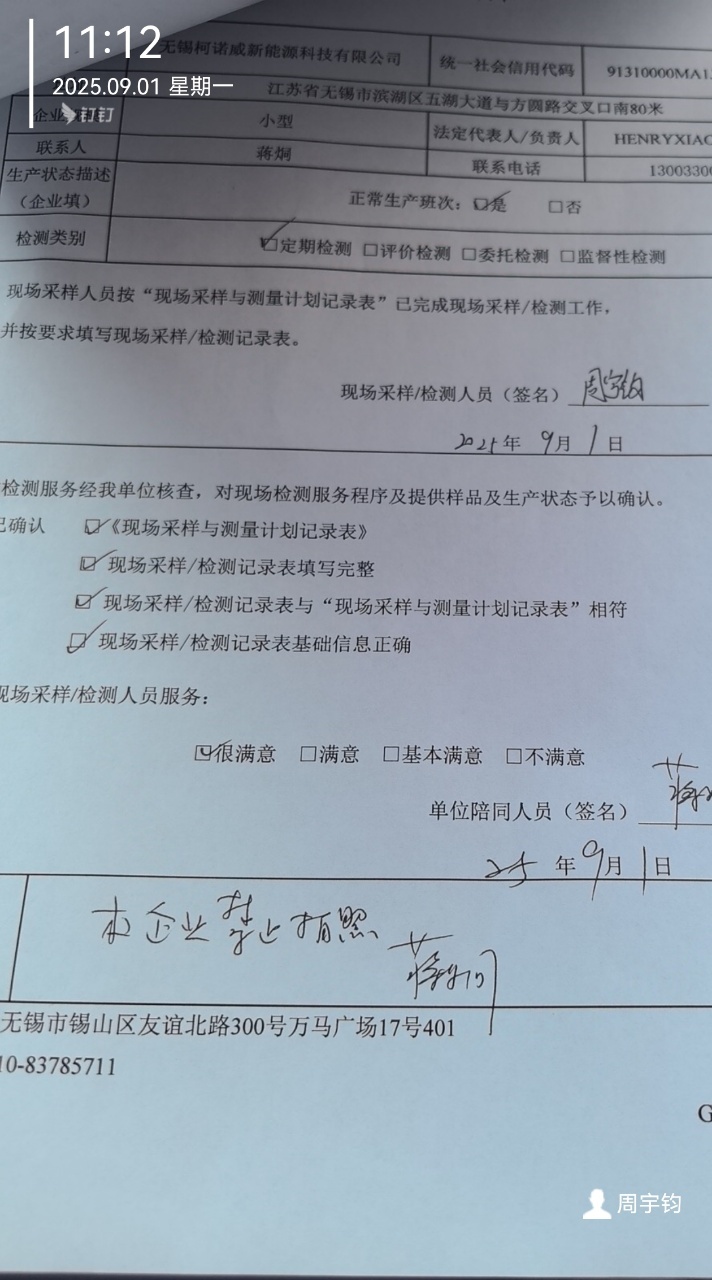 11:12
2025.09.01 星期一
钉钉
无锡柯诺威新能源科技有限公司 统一社会信用代码 91310000MA1
江苏省无锡市滨湖区五湖大道与方圆路交叉口南80米
企业 小型 法定代表人/负责人 HENRYXIAO
联系人 蒋炯 联系电话 1300330
生产状态描述
（企业填） 正常生产班次：☑是 □否
检测类别 ☑定期检测 □评价检测 □委托检测 □监督性检测
现场采样人员按“现场采样与测量计划记录表”已完成现场采样/检测工作，
并按要求填写现场采样/检测记录表。
现场采样/检测人员（签名） 周宇钧
2025年 9月 1日
检测服务经我单位核查，对现场检测服务程序及提供样品及生产状态予以确认。
已确认 ☑《现场采样与测量计划记录表》
☑现场采样/检测记录表填写完整
☑现场采样/检测记录表与“现场采样与测量计划记录表”相符
☑现场采样/检测记录表基础信息正确
现场采样/检测人员服务：
☑很满意 □满意 □基本满意 □不满意
单位陪同人员（签名） 蒋
25 年 9月 1日
本企业禁止拍照
蒋炯
无锡市锡山区友谊北路300号万马广场17号401
10-83785711
G
周宇钧